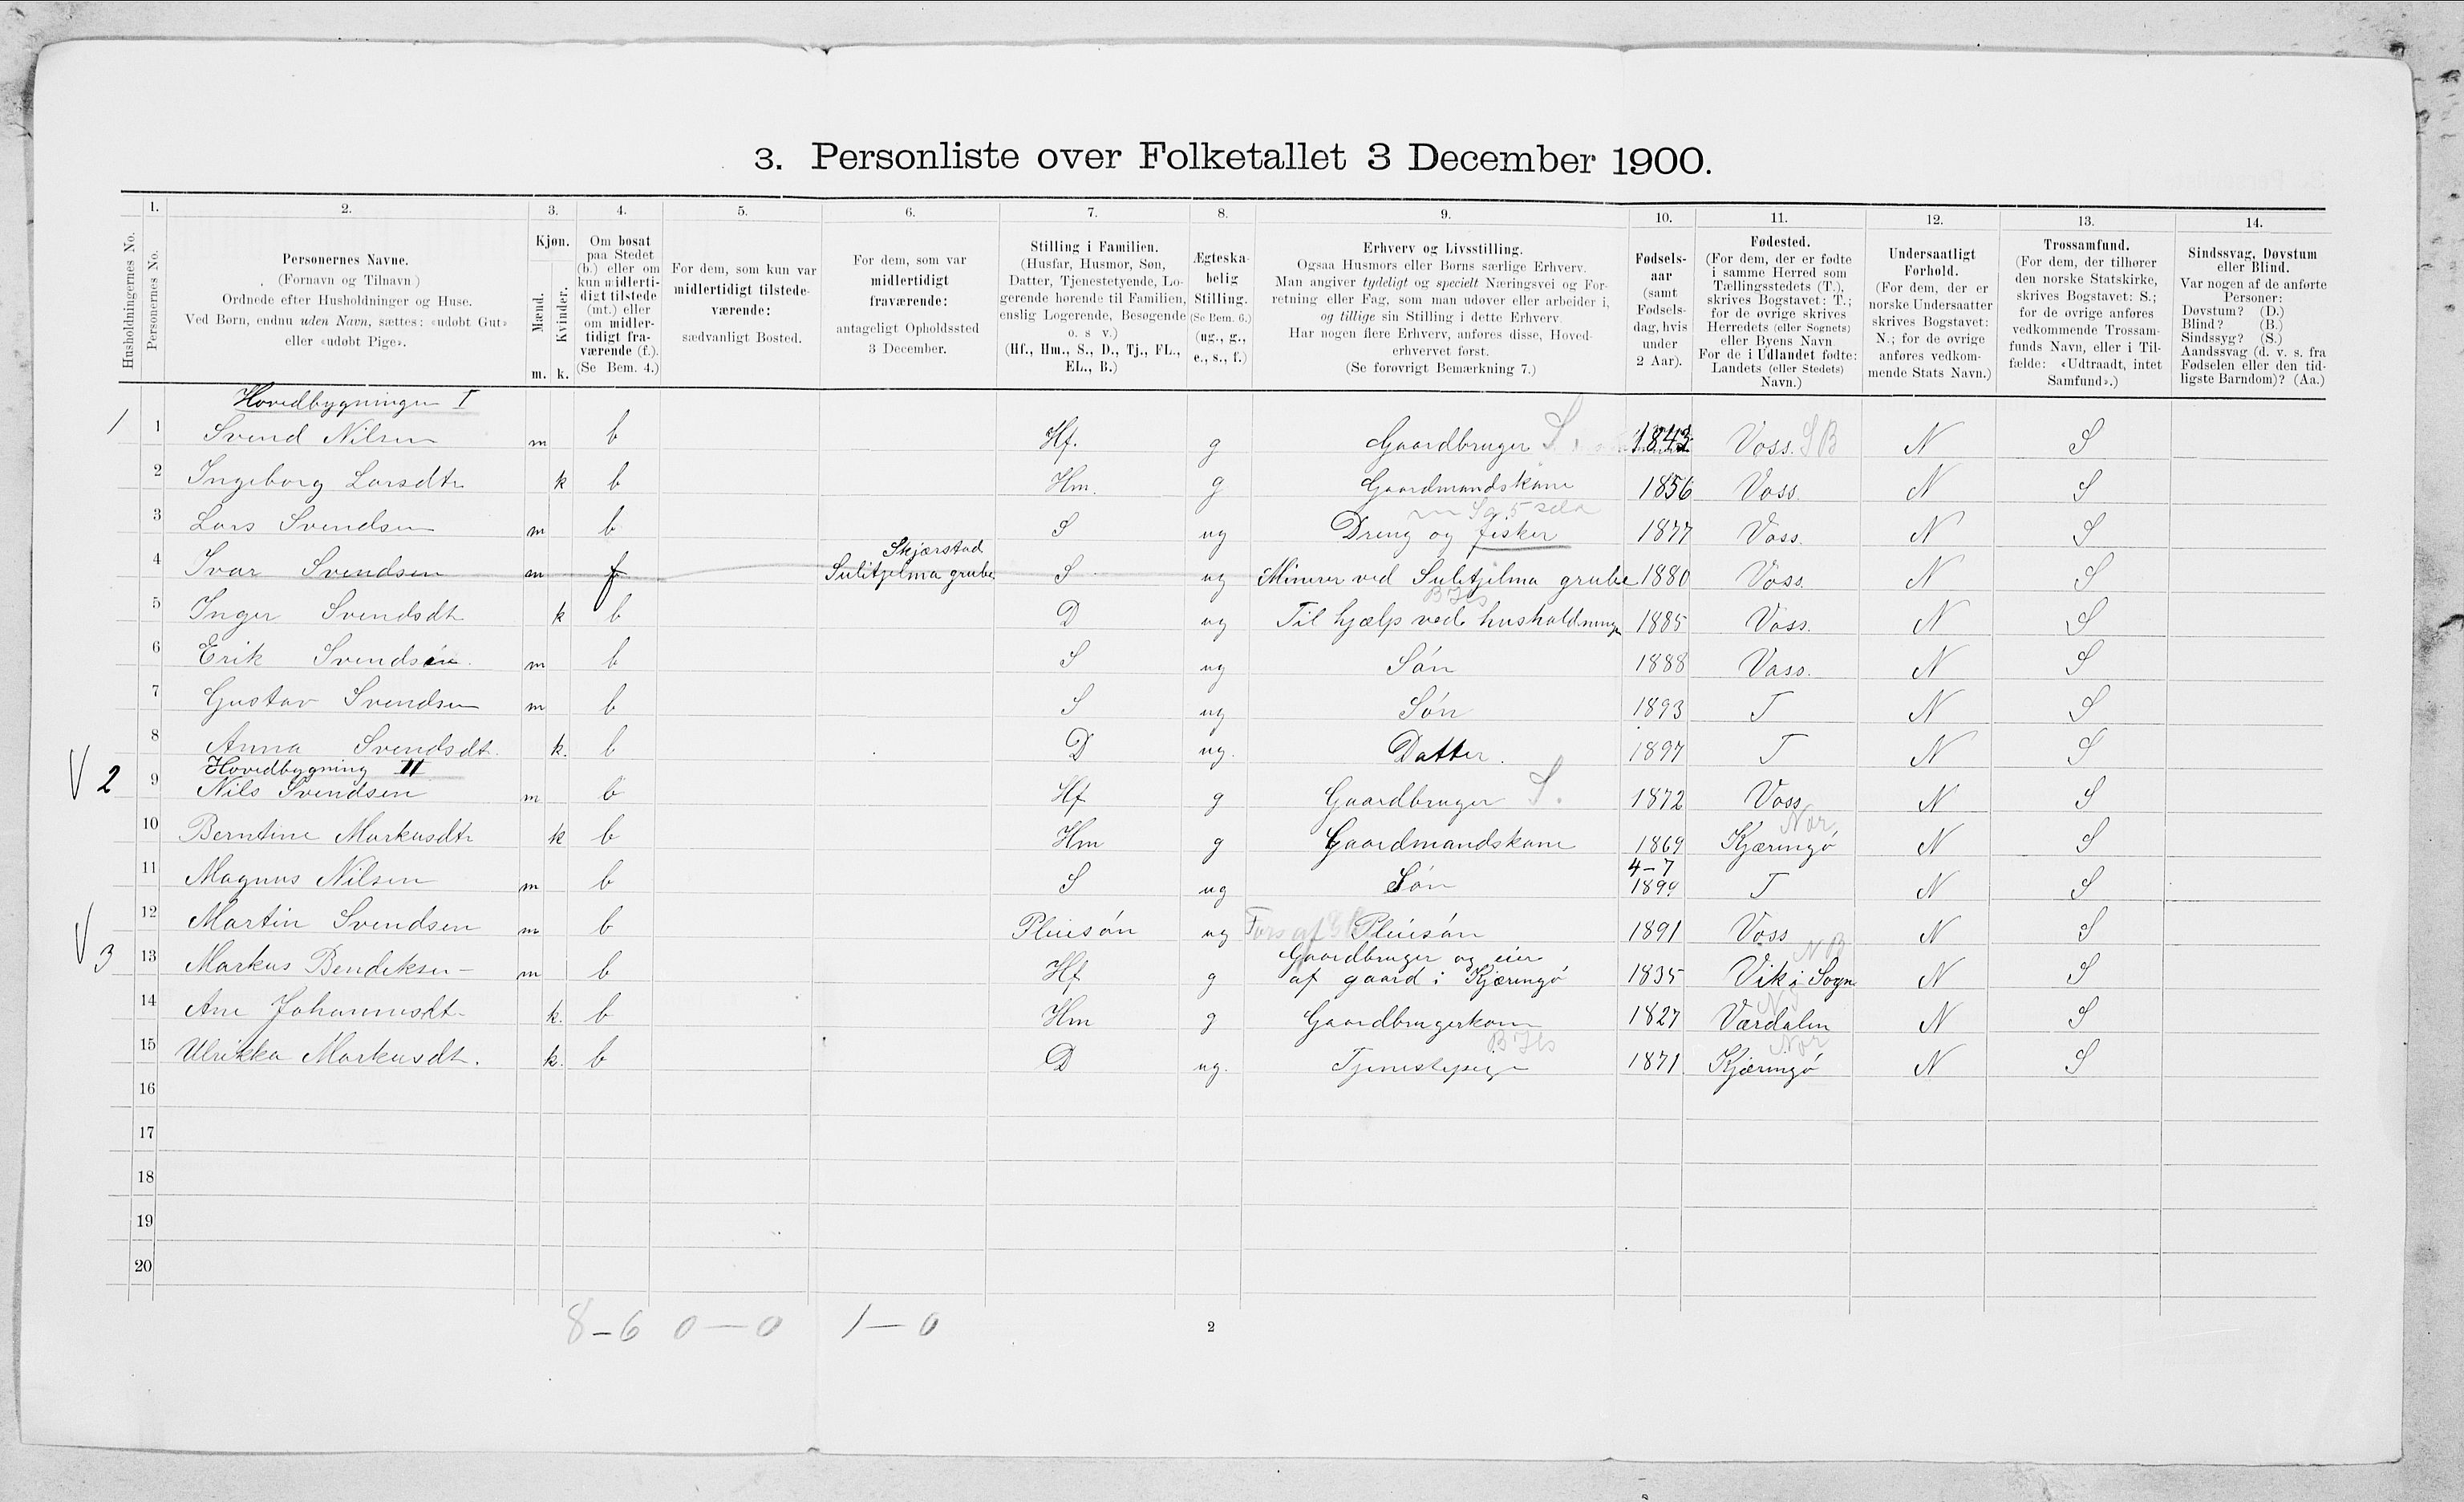 3. Personliste over Folketallet 3 December 1900.
1. 2. 3. 4. 5. 6. 7. 8. 9. 10. 11. 12. 13. 14.
Husholdningernes No.
Personernes No.
Personernes Navne.
(Fornavn og Tilnavn)
Ordnede efter Husholdninger og Huse.
Ved Børn, endnu uden Navn, sættes: «udøbt Gut»
eller «udøbt Pige».
Kjøn.
Mænd.
Kvinder.
m. k.
Om bosat
paa Stedet
(b.) eller om
kun midlerti-
digt tilstede
(mt.) eller
om midler-
tidigt fra-
værende (f.).
(Se Bem. 4.)
For dem, som kun var
midlertidigt tilstede-
værende:
sædvanligt Bosted.
For dem, som var
midlertidigt
fraværende:
antageligt Opholdssted
3 December.
Stilling i Familien.
(Husfar, Husmor, Søn,
Datter, Tjenestetyende, Lo-
gerende hørende til Familien,
enslig Logerende, Besøgende
o. s v.)
(Hf., Hm., S., D., Tj., FL.,
EL., B.)
Ægteska-
belig
Stilling.
(Se Bem. 6.)
(ug., g.,
e., s., f.)
Erhverv og Livsstilling.
Ogsaa Husmors eller Børns særlige Erhverv.
Man angiver tydeligt og specielt Næringsvei og For-
retning eller Fag, som man udøver eller arbeider i,
og tillige sin Stilling i dette Erhverv.
Har nogen flere Erhverv, anføres disse, Hoved-
erhvervet først.
(Se forøvrigt Bemærkning 7.)
Fødsels-
aar
(samt
Fødsels-
dag, hvis
under
2 Aar).
Fødested.
(For dem, der er fødte
i samme Herred som
Tællingsstedets (T.),
skrives Bogstavet: T.;
for de øvrige skrives
Herredets (eller Sognets)
eller Byens Navn
For de i Udlandet fødte:
Landets (eller Stedets)
Navn.)
Undersaatligt
Forhold.
(For dem, der er
norske Undersaatter
skrives Bogstavet:
N.; for de øvrige
anføres vedkom-
mende Stats Navn.)
Trossamfund.
(For dem, der tilhører
den norske Statskirke,
skrives Bogstavet: S.;
for de øvrige anføres
vedkommende Trossam-
funds Navn, eller i Til-
fælde: «Udtraadt, intet
Samfund».)
Sindssvag, Døvstum
eller Blind.
Var nogen af de anførte
Personer:
Døvstum? (D.)
Blind? (B.)
Sindssyg? (S.)
Aandssvag (d. v. s. fra
Fødselen eller den tid-
ligste Barndom)? (Aa.)
Hovedbygningen I
1 1 Svend Nilsen m b Hf. g Gaardbruger S. 1843 Voss. SB N S
2 Ingeborg Larsdtr k b Hm. g Gaardmandskone 1856 Voss. N S
3 Lars Svendsen m b S ug Dreng og fisker 1877 Voss. N S
Skjærstad
4 Ivar Svendsen m f Sulitjelma grube S ug Minerer ved Sulitjelma grube 1880 Voss. N S
B Hs
5 Inger Svendsdt k b D ug Til hjælp ved husholdningen 1885 Voss. N S
6 Erik Svendsen. m b S ug Søn 1888 Voss. N S
7 Gustav Svendsen m b S ug Søn 1893 T N S
8 Anna Svendsdt. k. b D ug. Datter. 1897 T N S
Hovedbygning II
V 2 9 Nils Svendsen m b Hf g Gaardbruger S. 1872 Voss N S
Nor
10 Berntine Markusdtr k b Hm g Gaardmandskone 1869 Kjæringø N S
4-7
11 Magnus Nilsen m b S ug Søn 1899 T N S
12 Martin Svendsen m b Pleiesøn ug Fors af Pleiesøn 1891 Voss N S
Gaardbruger og eier NB
V 3 13 Markus Bendiksen m b Hf g af gaard i Kjæringø 1835 Vik i Sogn N S
14 Ane Johannesdt k. b Hm g Gaardbrugerkone 1827 Værdalen N S
B Hs Nor
15 Ulrikka Markusdt. k. b D ug. Tjenestepige 1871 Kjæringø N S
16
17
18
19
20
8-6 0-0 1-0
2